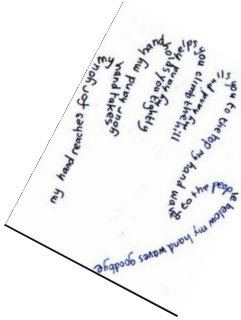 my hand reaches for you my
hand takes
your hand my hand
holds you tightly
my hand helps
you climb the hill
my hand pulls
you to the top my hand waves
to the people below my hand waves goodbye